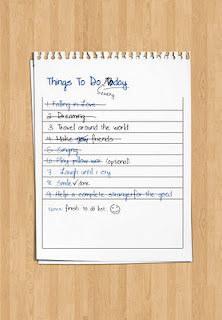 Things To Do Today
every
1. Falling in Love
2. Dreaming
3. Travel around the world
4. Make new friends
5. Singing
6. Play pillow war (optional)
7. Laugh until i cry
8. Smile √ done
9. Help a complete stranger for the good
finish to do list.